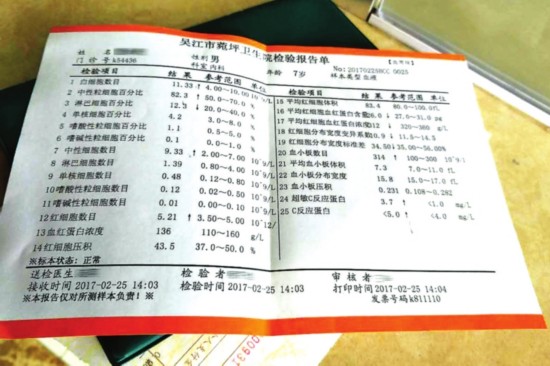 吴江市菀坪卫生院检验报告单
姓 名
性别 男
年龄 7岁
门诊号 k54436
科室 内科
No:20170225BCC 0025
样本类型 血液
检验项目 结果 参考范围 单位
1 白细胞数目 11.33 ↑ 4.00~10.00
2 中性粒细胞百分比 82.3 ↑ 50.0~70.0 %
3 淋巴细胞百分比 12.3 20.0~40.0 %
4 单核细胞百分比 4.2 3.0~8.0 %
5 嗜酸性粒细胞百分比 1.1 0.5~5.0 %
6 嗜碱性粒细胞百分比 0.1 0.0~1.0 %
7 中性细胞数目 9.33 ↑ 2.00~7.00 10^9/L
8 淋巴细胞数目 1.39 0.80~4.00 10^9/L
9 单核细胞数目 0.48 0.12~0.80 10^9/L
10 嗜酸性粒细胞数目 0.12 0.02~0.50 10^9/L
11 嗜碱性粒细胞数目 0.01 0.00~0.10 10^9/L
12 红细胞数目 5.21 ↑ 3.50~5.00 10^12/L
13 血红蛋白浓度 136 110~160 g/L
14 红细胞压积 43.5 37.0~50.0 %
检验项目 结果 参考范围 单位
15 平均红细胞体积 83.4 80.0~100.0 fL
16 平均红细胞血红蛋白含量
17 平均红细胞血红蛋白浓度 312 320~360 g/L
18 红细胞分布宽度变异系数 11.5~14.5
19 红细胞分布宽度标准差 34.50 35.00~56.00%
20 血小板数目 314 ↑ 100~300 10^9/L
21 平均血小板体积 7.3 7.0~11.0 fL
22 血小板分布宽度 15.8 15.0~17.0 fL
23 血小板压积 0.231 0.108~0.282
24 超敏C反应蛋白 3.7 ↑ <1.0 mg/L
25 C反应蛋白 <5.0 ↑ <4.0 mg/L
※标本状态:正常
送检医生
检验者
审核者
接收时间 2017-02-25 14:03
检验时间 2017-02-25 14:03
打印时间 2017-02-25 14:04
※本报告仅对所测样本负责!※
发票号码k811110